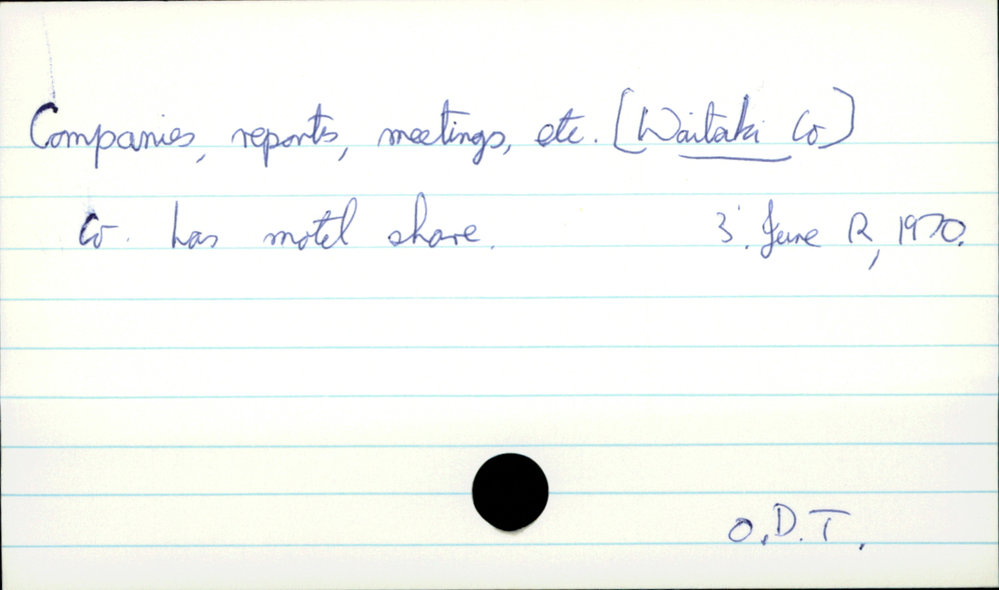 Companies, reports, meetings, etc. [Waitaki Co]
Co. has motel share. 3. June R, 1970.
O.D.T.